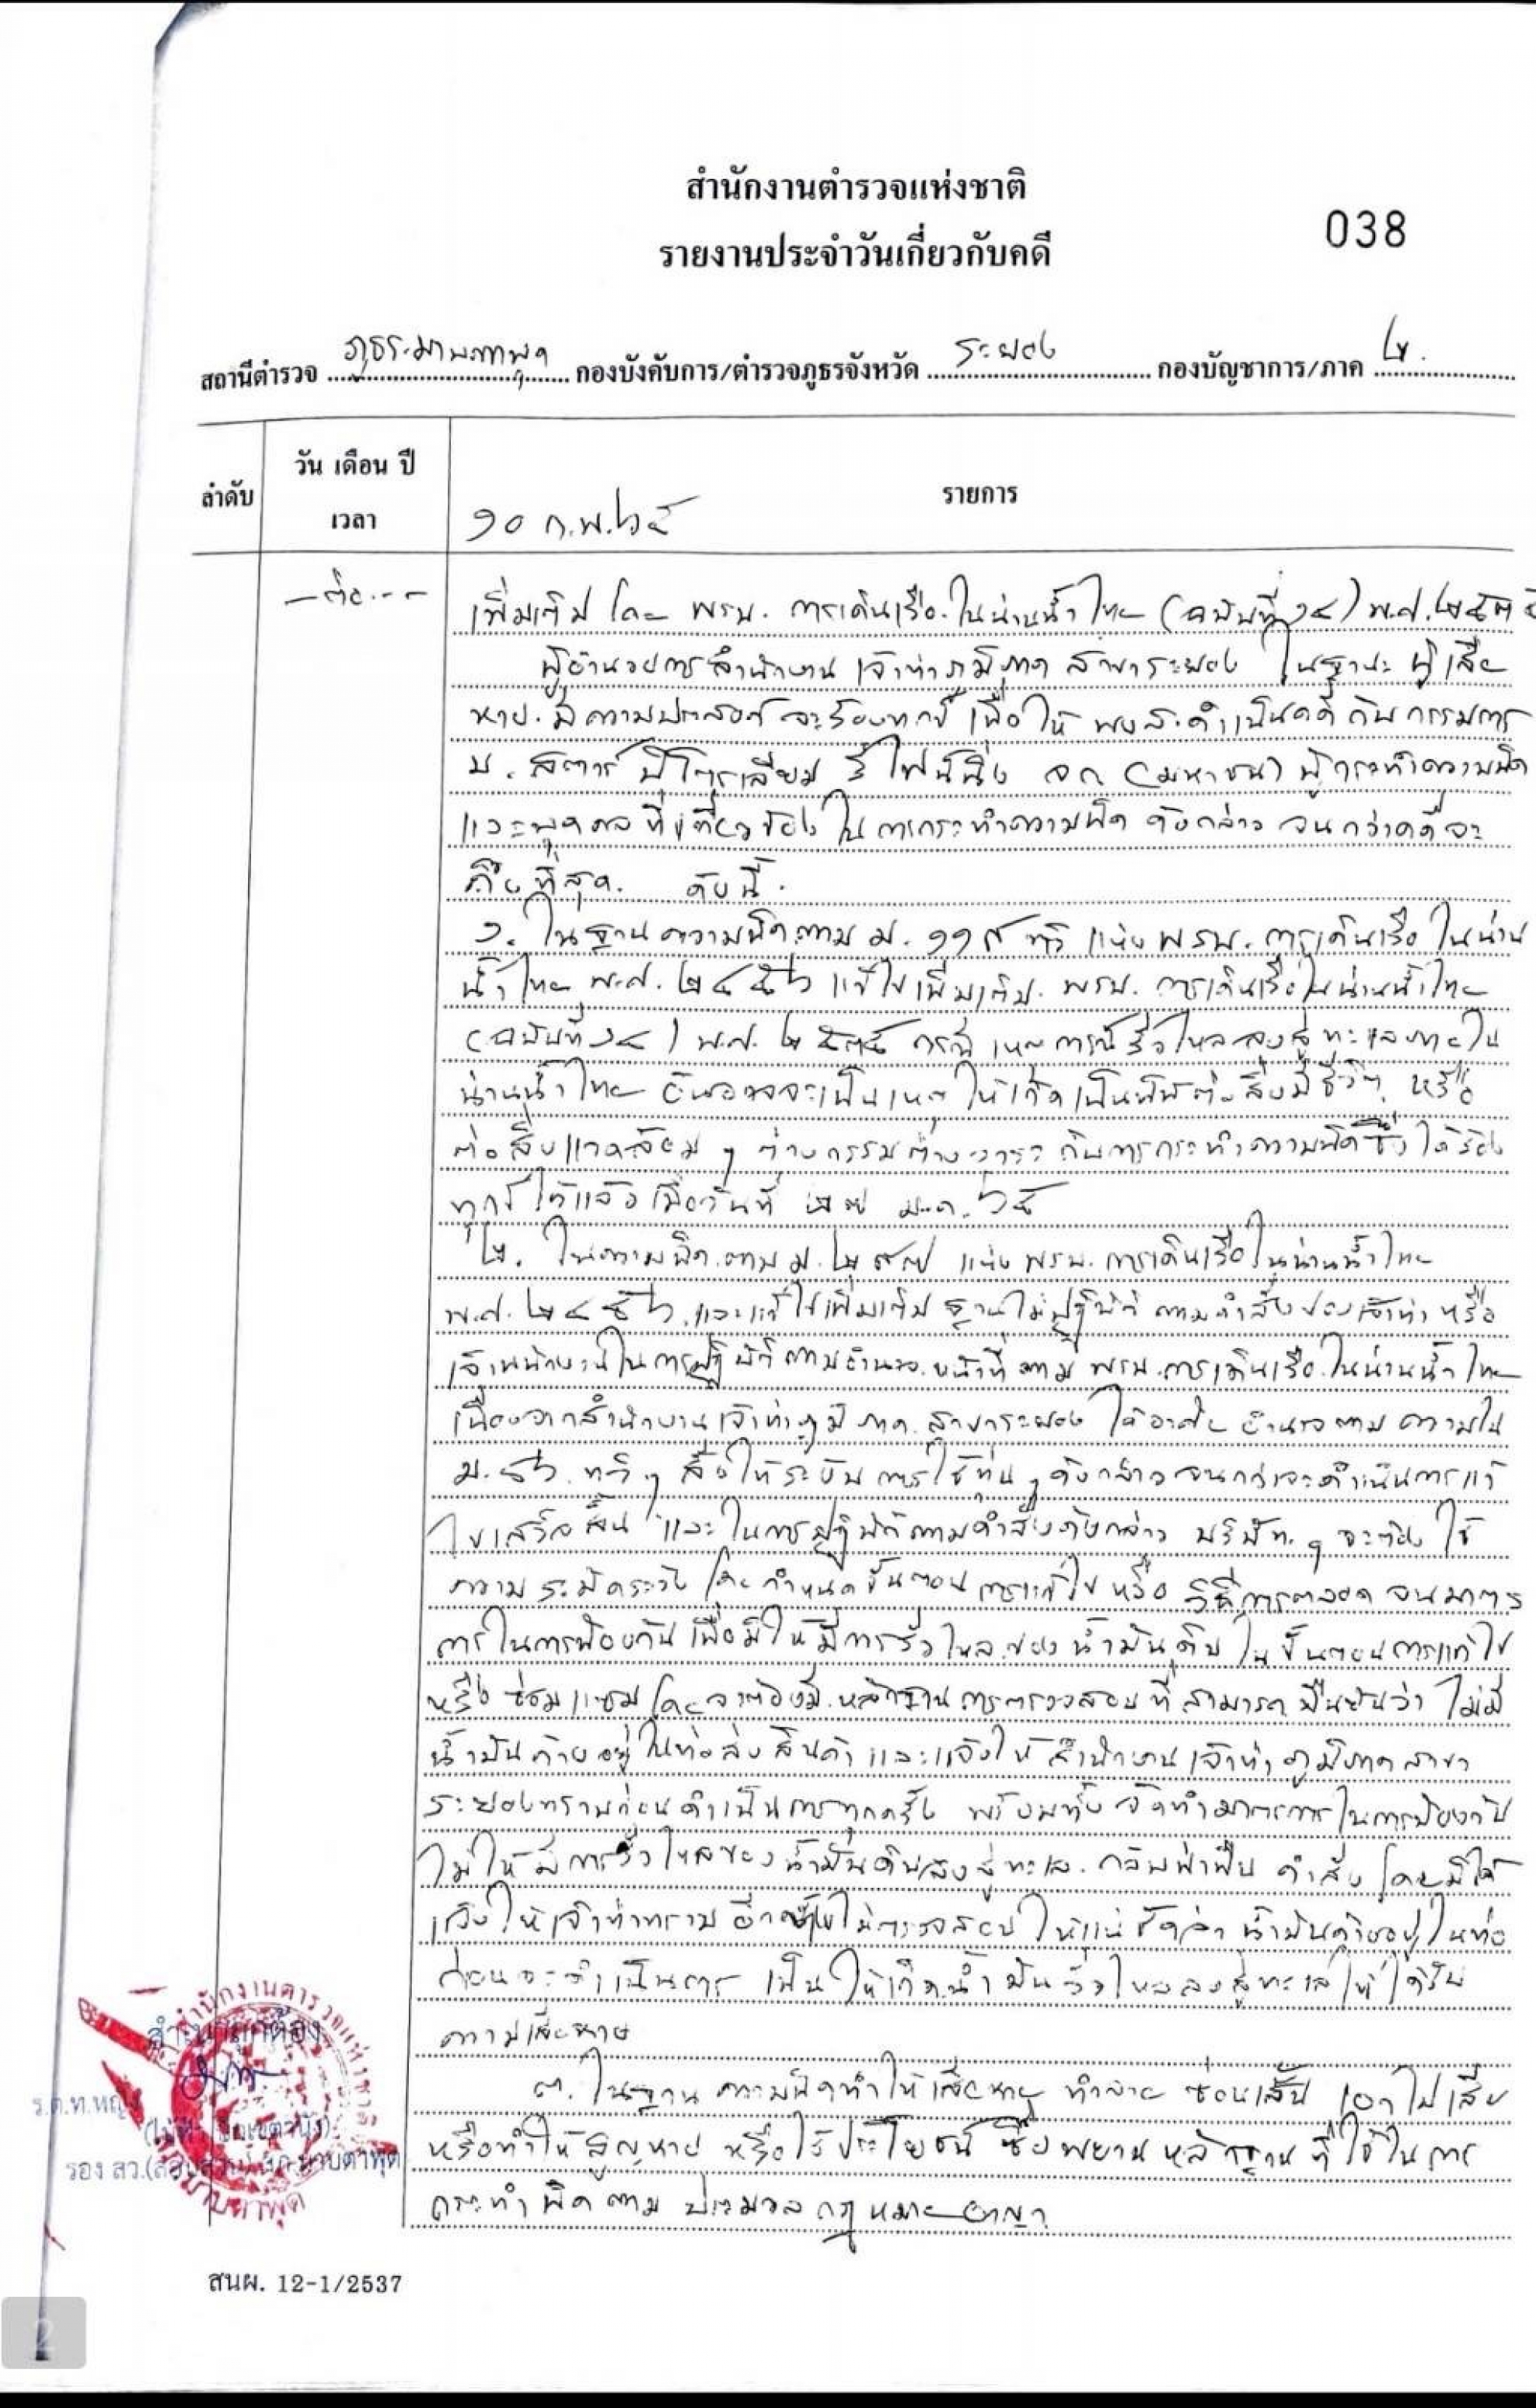 สำนักงานตำรวจแห่งชาติ
รายงานประจำวันเกี่ยวกับคดี
038
สถานีตำรวจ ภูธรมาบตาพุด กองบังคับการ/ตำรวจภูธรจังหวัด ระยอง กองบัญชาการ/ภาค ๒.
ลำดับ
วัน เดือน ปี
เวลา
รายการ
๑๐ ก.พ.๖๕
-ต่อ--
เพิ่มเติม โดย พรบ. การเดินเรือในน่านน้ำไทย (ฉบับที่ ๑๔) พ.ศ.๒๕๓๕
ผู้อำนวยการสำนักงาน เจ้าท่าภูมิภาค สาขาระยอง ในฐานะ ผู้เสีย
หาย มีความประสงค์ จะร้องทุกข์ เพื่อให้ พงส.ดำเนินคดี กับ กรรมการ
บ. สตาร์ ปิโตรเลียม รีไฟน์นิ่ง จก (มหาชน) ผู้กระทำความผิด
และบุคคลที่เกี่ยวข้อง ในการกระทำความผิด ดังกล่าว จนกว่าคดีจะ
ถึงที่สุด. ดังนี้.
๑. ในฐานความผิดตาม ม. ๑๑๙ ทวิ แห่ง พรบ. การเดินเรือ ในน่าน
น้ำไทย พ.ศ. ๒๔๕๖ แก้ไขเพิ่มเติม. พรบ. การเดินเรือในน่านน้ำไทย
(ฉบับที่ ๑๔) พ.ศ. ๒๕๓๕ กรณี เหตุการณ์รั่วไหลลงสู่ทะเลภายใน
น่านน้ำไทย อันอาจจะเป็นเหตุ ให้เกิดเป็นพิษต่อสิ่งมีชีวิต หรือ
ต่อสิ่งแวดล้อม ๆ ต่างกรรมต่างวาระ กับการกระทำความผิดซึ่งได้ร้อง
ทุกข์ไว้แล้ว เมื่อวันที่ ๒๗ ม.ค. ๖๕
๒. ในความผิด ตาม ม. ๒๙๗ แห่ง พรบ. การเดินเรือในน่านน้ำไทย
พ.ศ. ๒๔๕๖ และแก้ไขเพิ่มเติม ฐานไม่ปฏิบัติ ตามคำสั่งของเจ้าท่า หรือ
เจ้าพนักงานในการปฏิบัติตามอำนาจ หน้าที่ ตาม พรบ. การเดินเรือ ในน่านน้ำไทย
เนื่องจากสำนักงานเจ้าท่าภูมิภาค สาขาระยอง ได้อาศัย อำนาจตาม ความใน
ม. ๔๖ ทวิ ๆ สั่งให้ระงับ การใช้ทุ่น ๆ ดังกล่าว จนกว่าจะดำเนินการแก้
ไขเสร็จสิ้น และในการปฏิบัติตามคำสั่งดังกล่าว บริษัท ๆ จะต้อง ใช้
ความ ระมัดระวัง โดย กำหนดขั้นตอน การแก้ไข หรือ วิธีการตลอด จนมาตร
การในการป้องกัน เพื่อมิให้มีการรั่วไหล ของ น้ำมันดิบ ในขั้นตอนการแก้ไข
หรือ ซ่อมแซม โดยจะต้องมี หลักฐาน การตรวจสอบ ที่สามารถ ยืนยันว่า ไม่มี
น้ำมันค้างอยู่ในท่อส่งสินค้า และแจ้งให้ สำนักงาน เจ้าท่า ภูมิภาค สาขา
ระยองทราบก่อนดำเนินการทุกครั้ง พร้อมทั้ง จัดทำมาตรการในการป้องกัน
ไม่ให้มีการรั่วไหลของน้ำมันดิบลงสู่ทะเล กลับฝ่าฝืน คำสั่ง โดยมิได้
แจ้งให้เจ้าท่าทราบ อีกทั้งไม่ตรวจสอบ ให้แน่ชัดว่า น้ำมันค้างอยู่ในท่อ
ก่อนจะดำเนินการ เป็น ให้เกิดน้ำมันรั่วไหลลงสู่ทะเล ให้ได้รับ
ความเสียหาย
๓. ในฐาน ความผิดทำให้เสียหาย ทำลาย ซ่อนเร้น เอาไปเสีย
หรือทำให้สูญหาย หรือไร้ประโยชน์ ซึ่งพยานหลักฐาน ที่ใช้ในการ
กระทำผิด ตาม ประมวลกฎหมายอาญา
สำเนาถูกต้อง
ร.ต.ท.หญิง
รอง สว.(สอบสวน) สภ.มาบตาพุด
สนผ. 12-1/2537
2